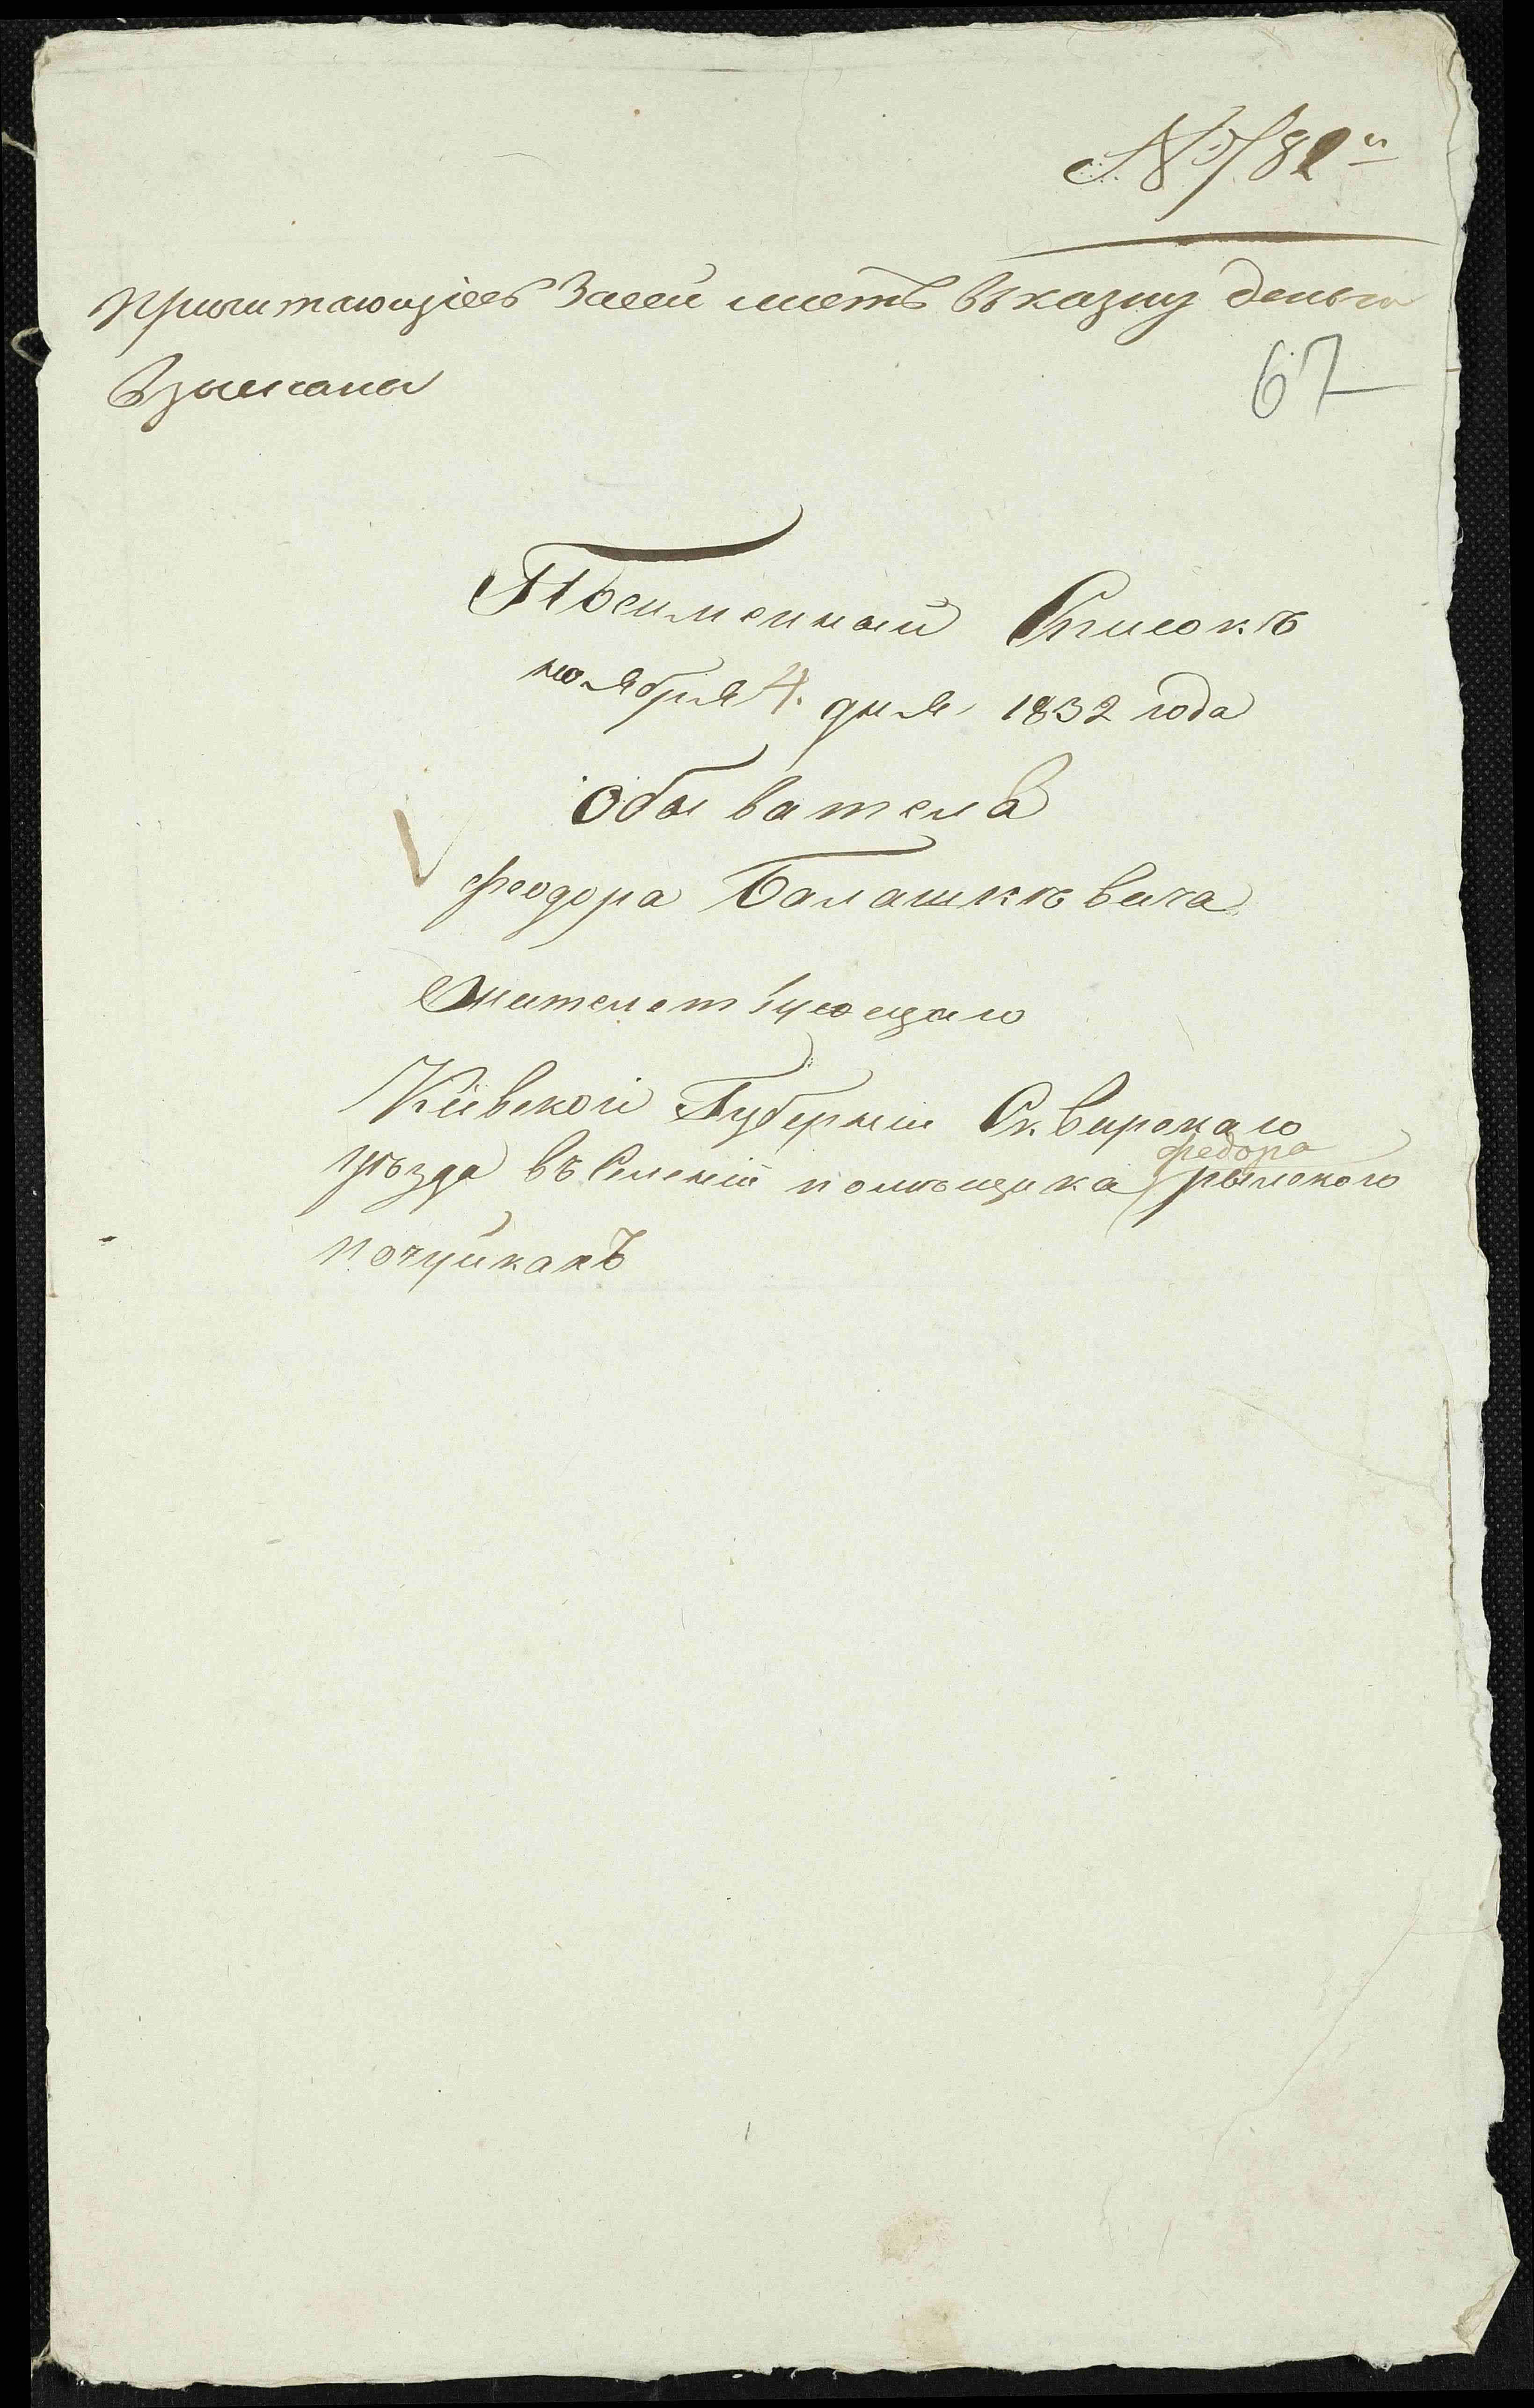 № 782й
Причитающіесь Засей листъ въ казну деньги
взысканы
67
Поименный Списокъ
ноября 4. дня 1832 года
Обывателя
Феодора Балашкѣвича
Жительствующаго
Кіевской Губерніи Сквирскаго
уѣзда въ Селеніи помѣщика Федора рыльского
почуйкахъ